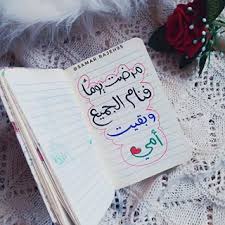 @SAMAR BAJEHES
مرضت يوماً
فنام الجميع
وبقيت
أمي